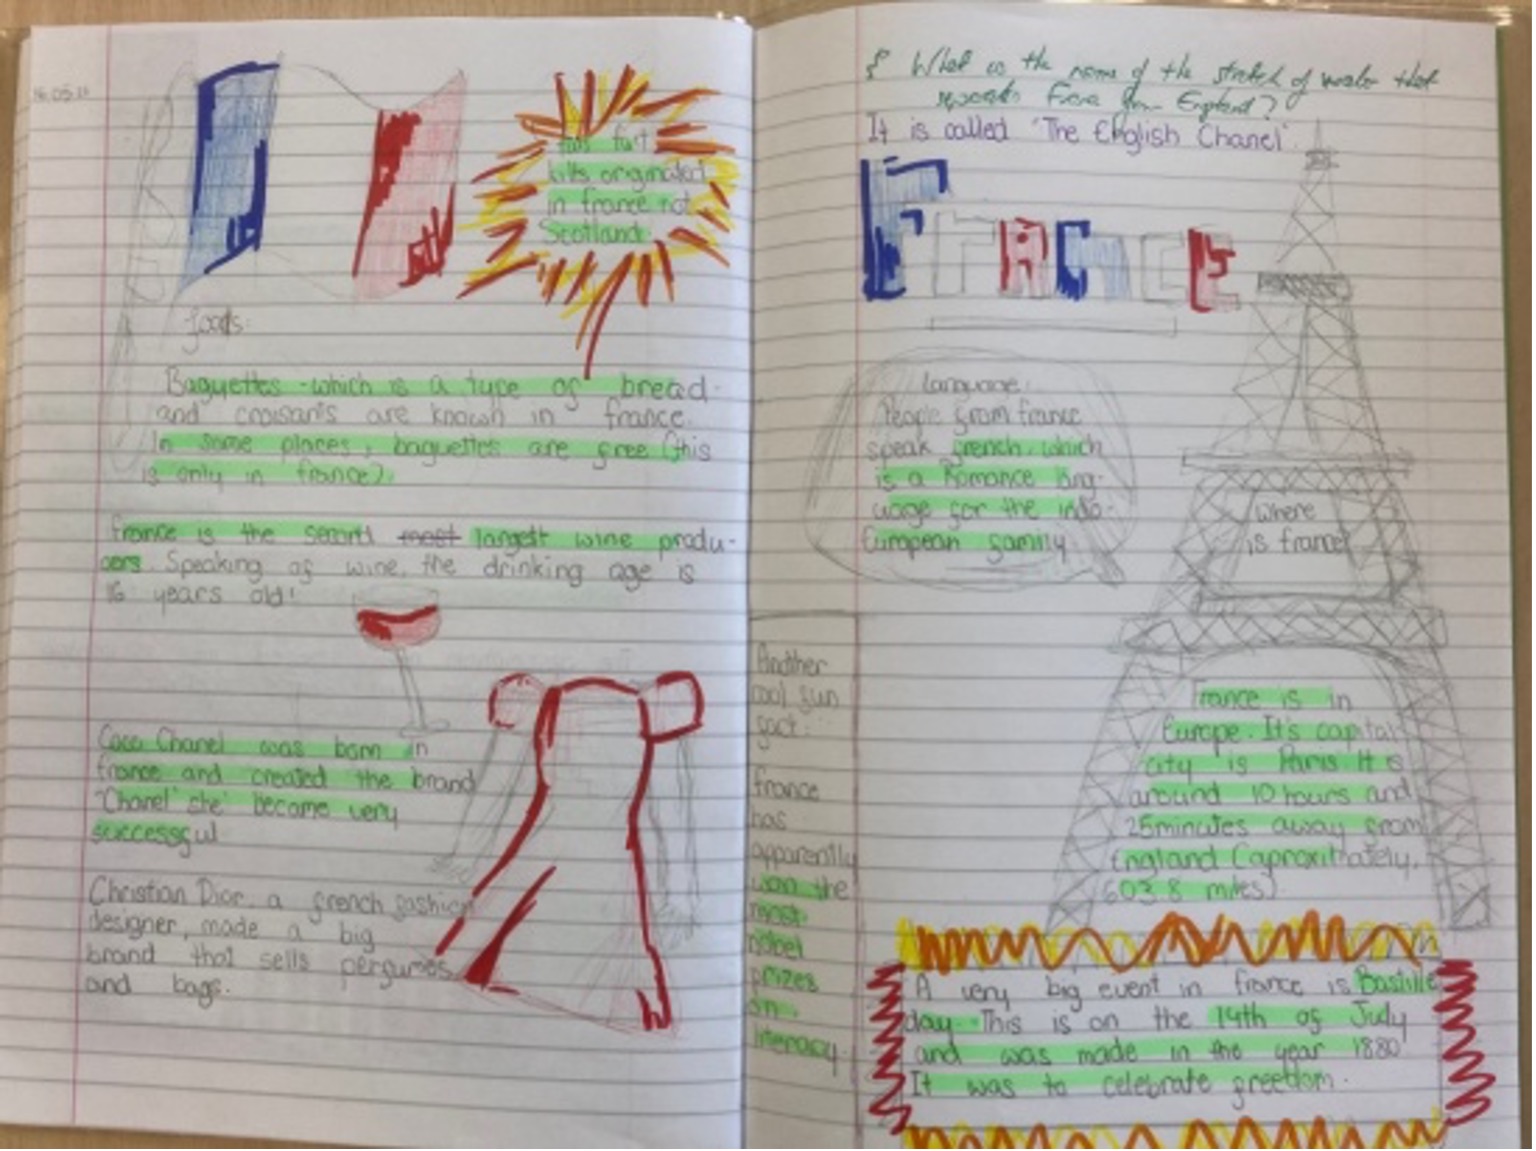 fun fact
kilts originated
in france not
Scotland
foods:
Baguettes - which is a type of bread -
and croisants are known in france.
In some places, baguettes are free (this
is only in france).
france is the second most largest wine produ-
cers. Speaking of wine, the drinking age is
16 years old!
Coco Chanel was born in
france and created the brand
"Chanel" she became very
successful
Christian Dior, a french fashion
designer, made a big
brand that sells perfumes
and bags.
What is the name of the stretch of water that
separates France from England?
It is called 'The English Chanel'.
FRANCE
language:
People from france
speak french, which
is a Romance lang-
uage for the indo-
European family
where
is france
Another
cool fun
fact:
france
has
apparently
won the
most
nobel
prizes
in
literacy.
France is in
Europe. It's capital
city is Paris. It is
around 10 hours and
25minutes away from
England (aproximately,
603.8 miles)
A very big event in france is Bastille
day. This is on the 14th of July
and was made in the year 1880
It was to celebrate freedom.